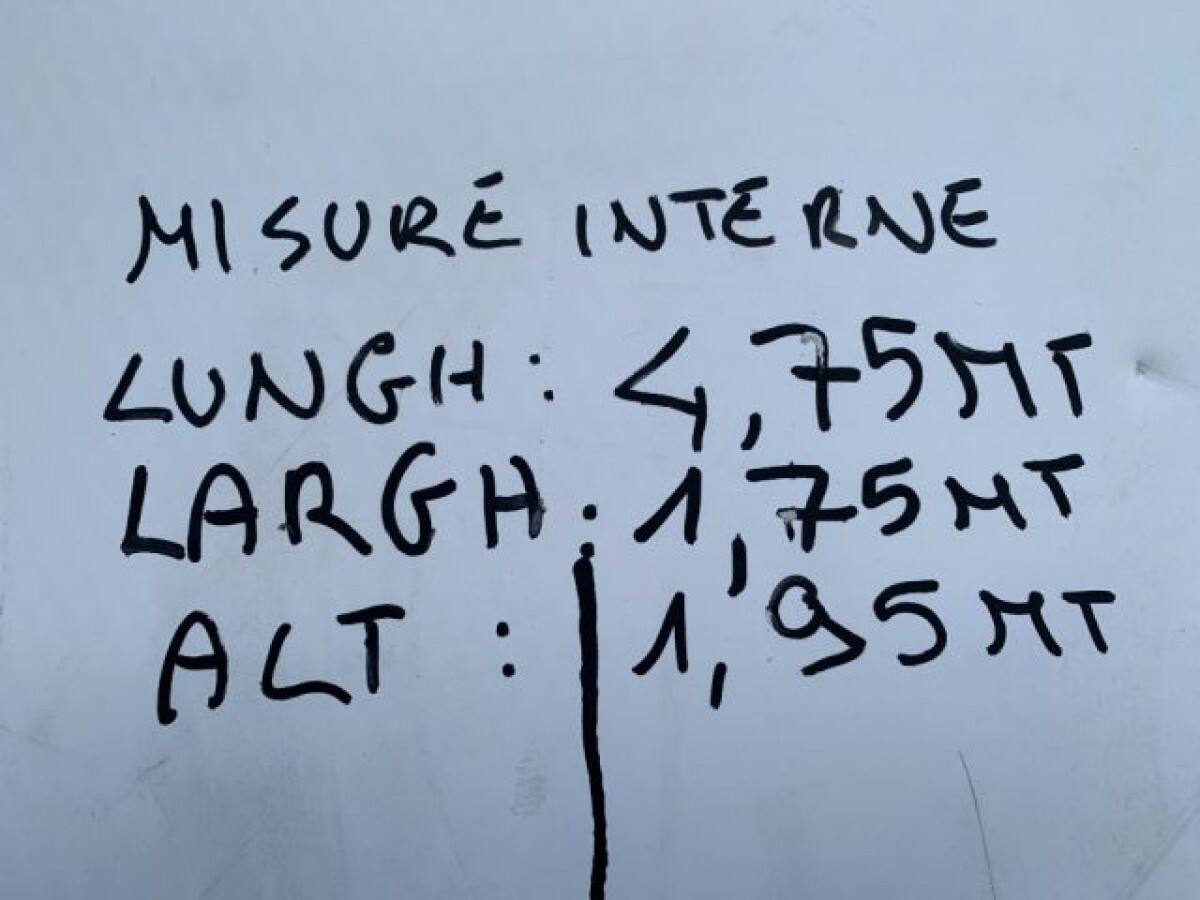 MISURE INTERNE
LUNGH: 4,75 MT
LARGH: 1,75 MT
ALT: 1,95 MT